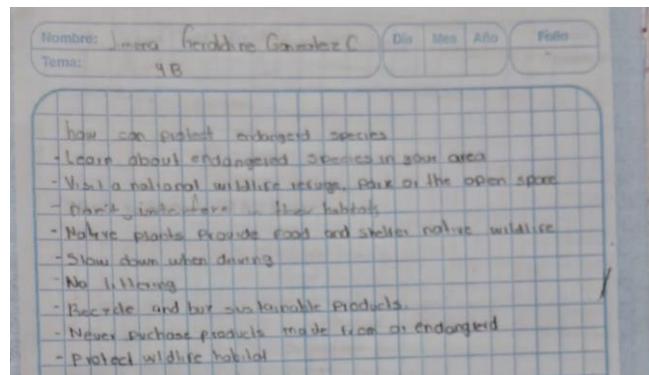 Nombre: Gerddine Gonzalez C Día Mes Año Folio
Tema: 9B
how can protect endangerd species
- Learn about endangered species in your area
- Visit a national wildlife refuge, park or the open space
- Don't interfere in their habitats
- Native plants provide food and shelter native wildlife
- Slow down when driving
- No littering
- Recycle and buy sustainable products.
- Never puchase products made from an endangerd
- Protect wildlife habitat